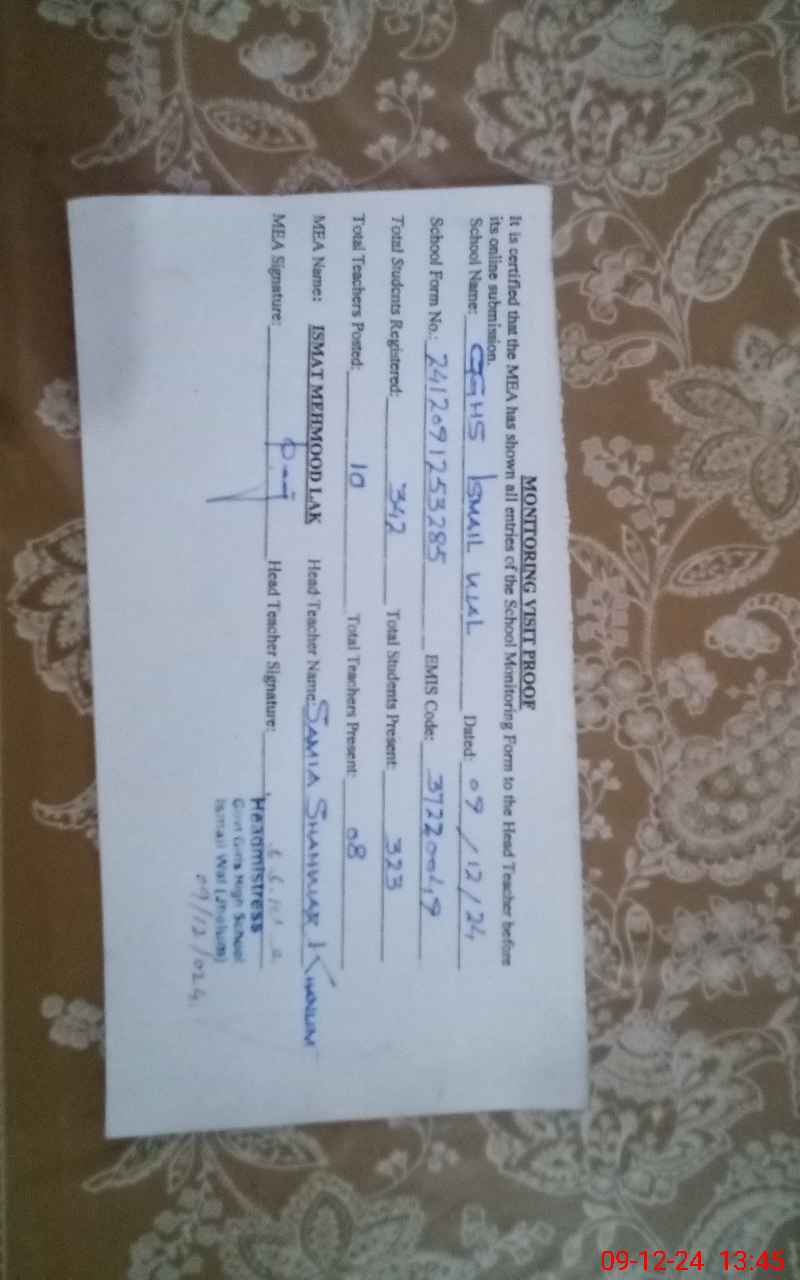 MONITORING VISIT PROOF
It is certified that the MEA has shown all entries of the School Monitoring Form to the Head Teacher before
its online submission.
School Name: GGHS ISMAIL WAL Dated: 09/12/24
School Form No.: 2412091253285 EMIS Code:
Total Students Registered: 342 Total Students Present: 323
Total Teachers Posted: 10 Total Teachers Present: 08
MEA Name: ISMAT MEHMOOD LAK Head Teacher Name: SAMIA KHANUM
MEA Signature: Head Teacher Signature:
Headmistress
Govt Girls High School
Ismail Wal (Jhelum)
09/12/024
09-12-24 13:45